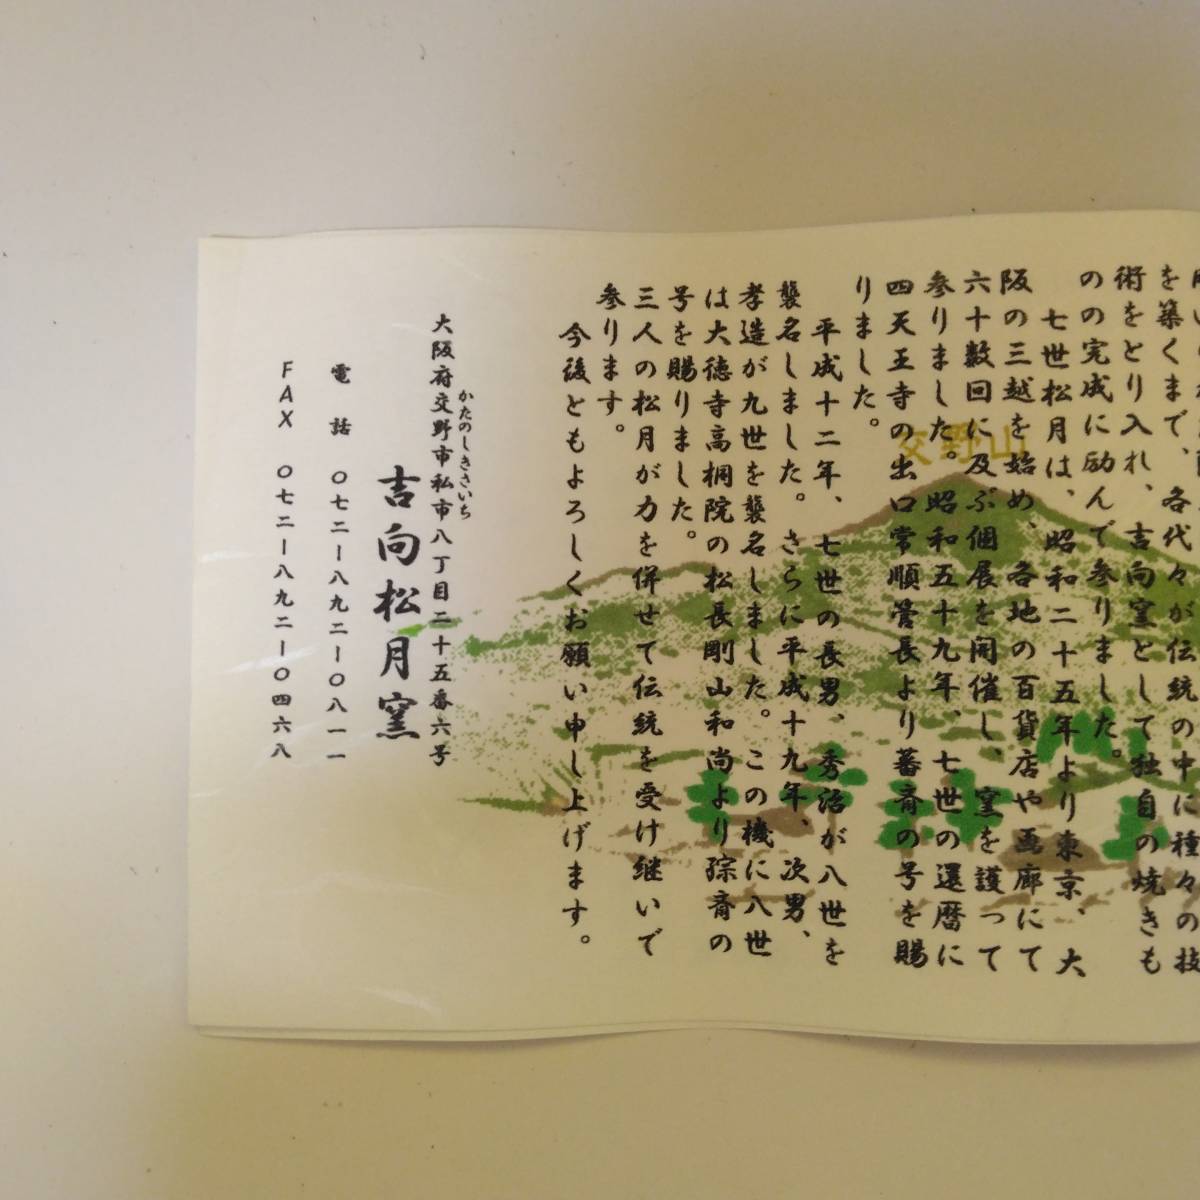 を築くまで、各代々が伝統の中に種々の技
術をとり入れ、吉向窯として独自の焼きも
のの完成に励んで参りました。
七世松月は、昭和二十五年より東京、大
阪の三越を始め、各地の百貨店や画廊にて
六十数回に及ぶ個展を開催し、窯を護って
参りました。昭和五十九年、七世の還暦に
四天王寺の出口常順管長より蕃斉の号を賜
りました。
平成十二年、七世の長男、秀治が八世を
襲名しました。さらに平成十九年、次男、
孝造が九世を襲名しました。この機に八世
は大徳寺高桐院の松長剛山和尚より孮斉の
号を賜りました。
三人の松月が力を併せて伝統を受け継いで
参ります。
今後ともよろしくお願い申し上げます。
交野山
かたのしきさいち
大阪府交野市私市八丁目二十五番六号
吉向松月窯
電話 〇七二ー八九二ー〇八一一
FAX 〇七二ー八九二ー〇四六八